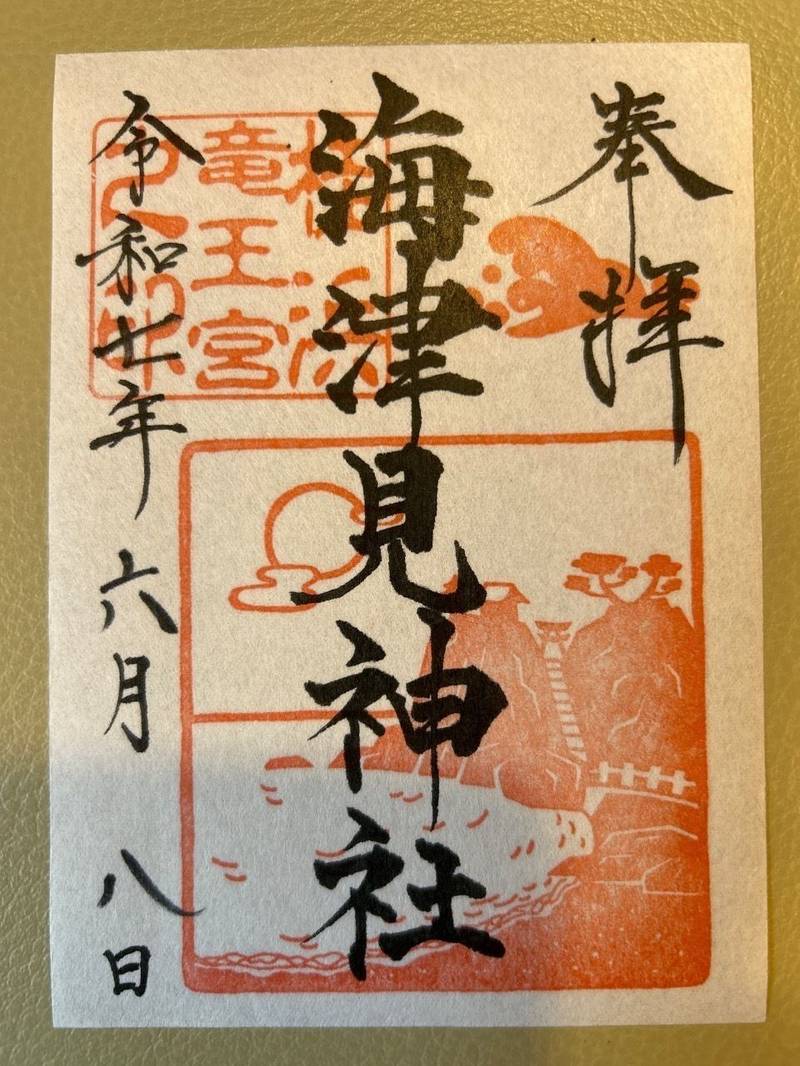 奉拝
海津見神社
桂浜
竜王宮
令和七年六月八日